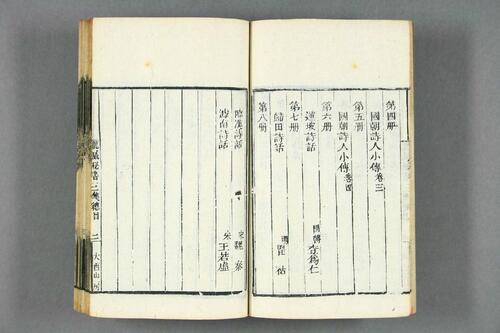 第四册
國朝詩人小傳卷三
第五册
國朝詩人小傳卷四
第六册
蓮坡詩話
國朝查為仁
第七册
歸田詩話
明瞿佑
第八册
臨漢詩話
宋魏泰
滹南詩話
宋王若虛
龍威秘書三集總目
三
大酉山房